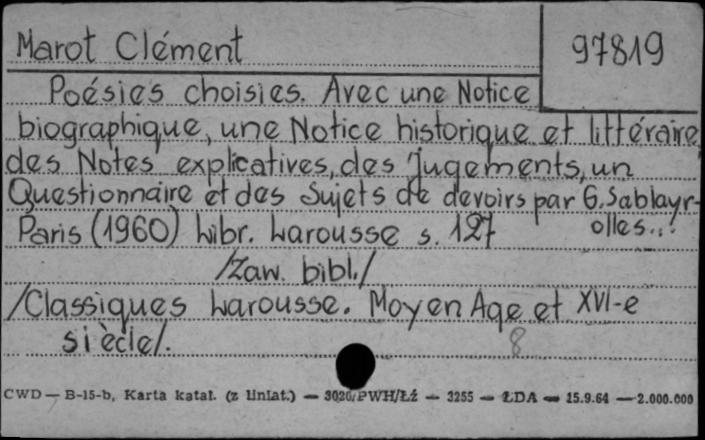 Marot Clément
97819
Poésies choisies. Avec une Notice
biographique, une Notice historique et littéraire
des Notes explicatives, des Jugements, un
Questionnaire et des Sujets de devoirs par G. Sablayr-
olles..!
Paris (1960) Libr. Larousse s. 127
/Zaw. bibl./
/Classiques Larousse. Moyen Age et XVI-e
siècle/.
8
CWD — B-15-b, Karta katal. (z liniat.) — 3026/PWH/Łź — 3255 — ŁDA — 15.9.64 — 2.000.000